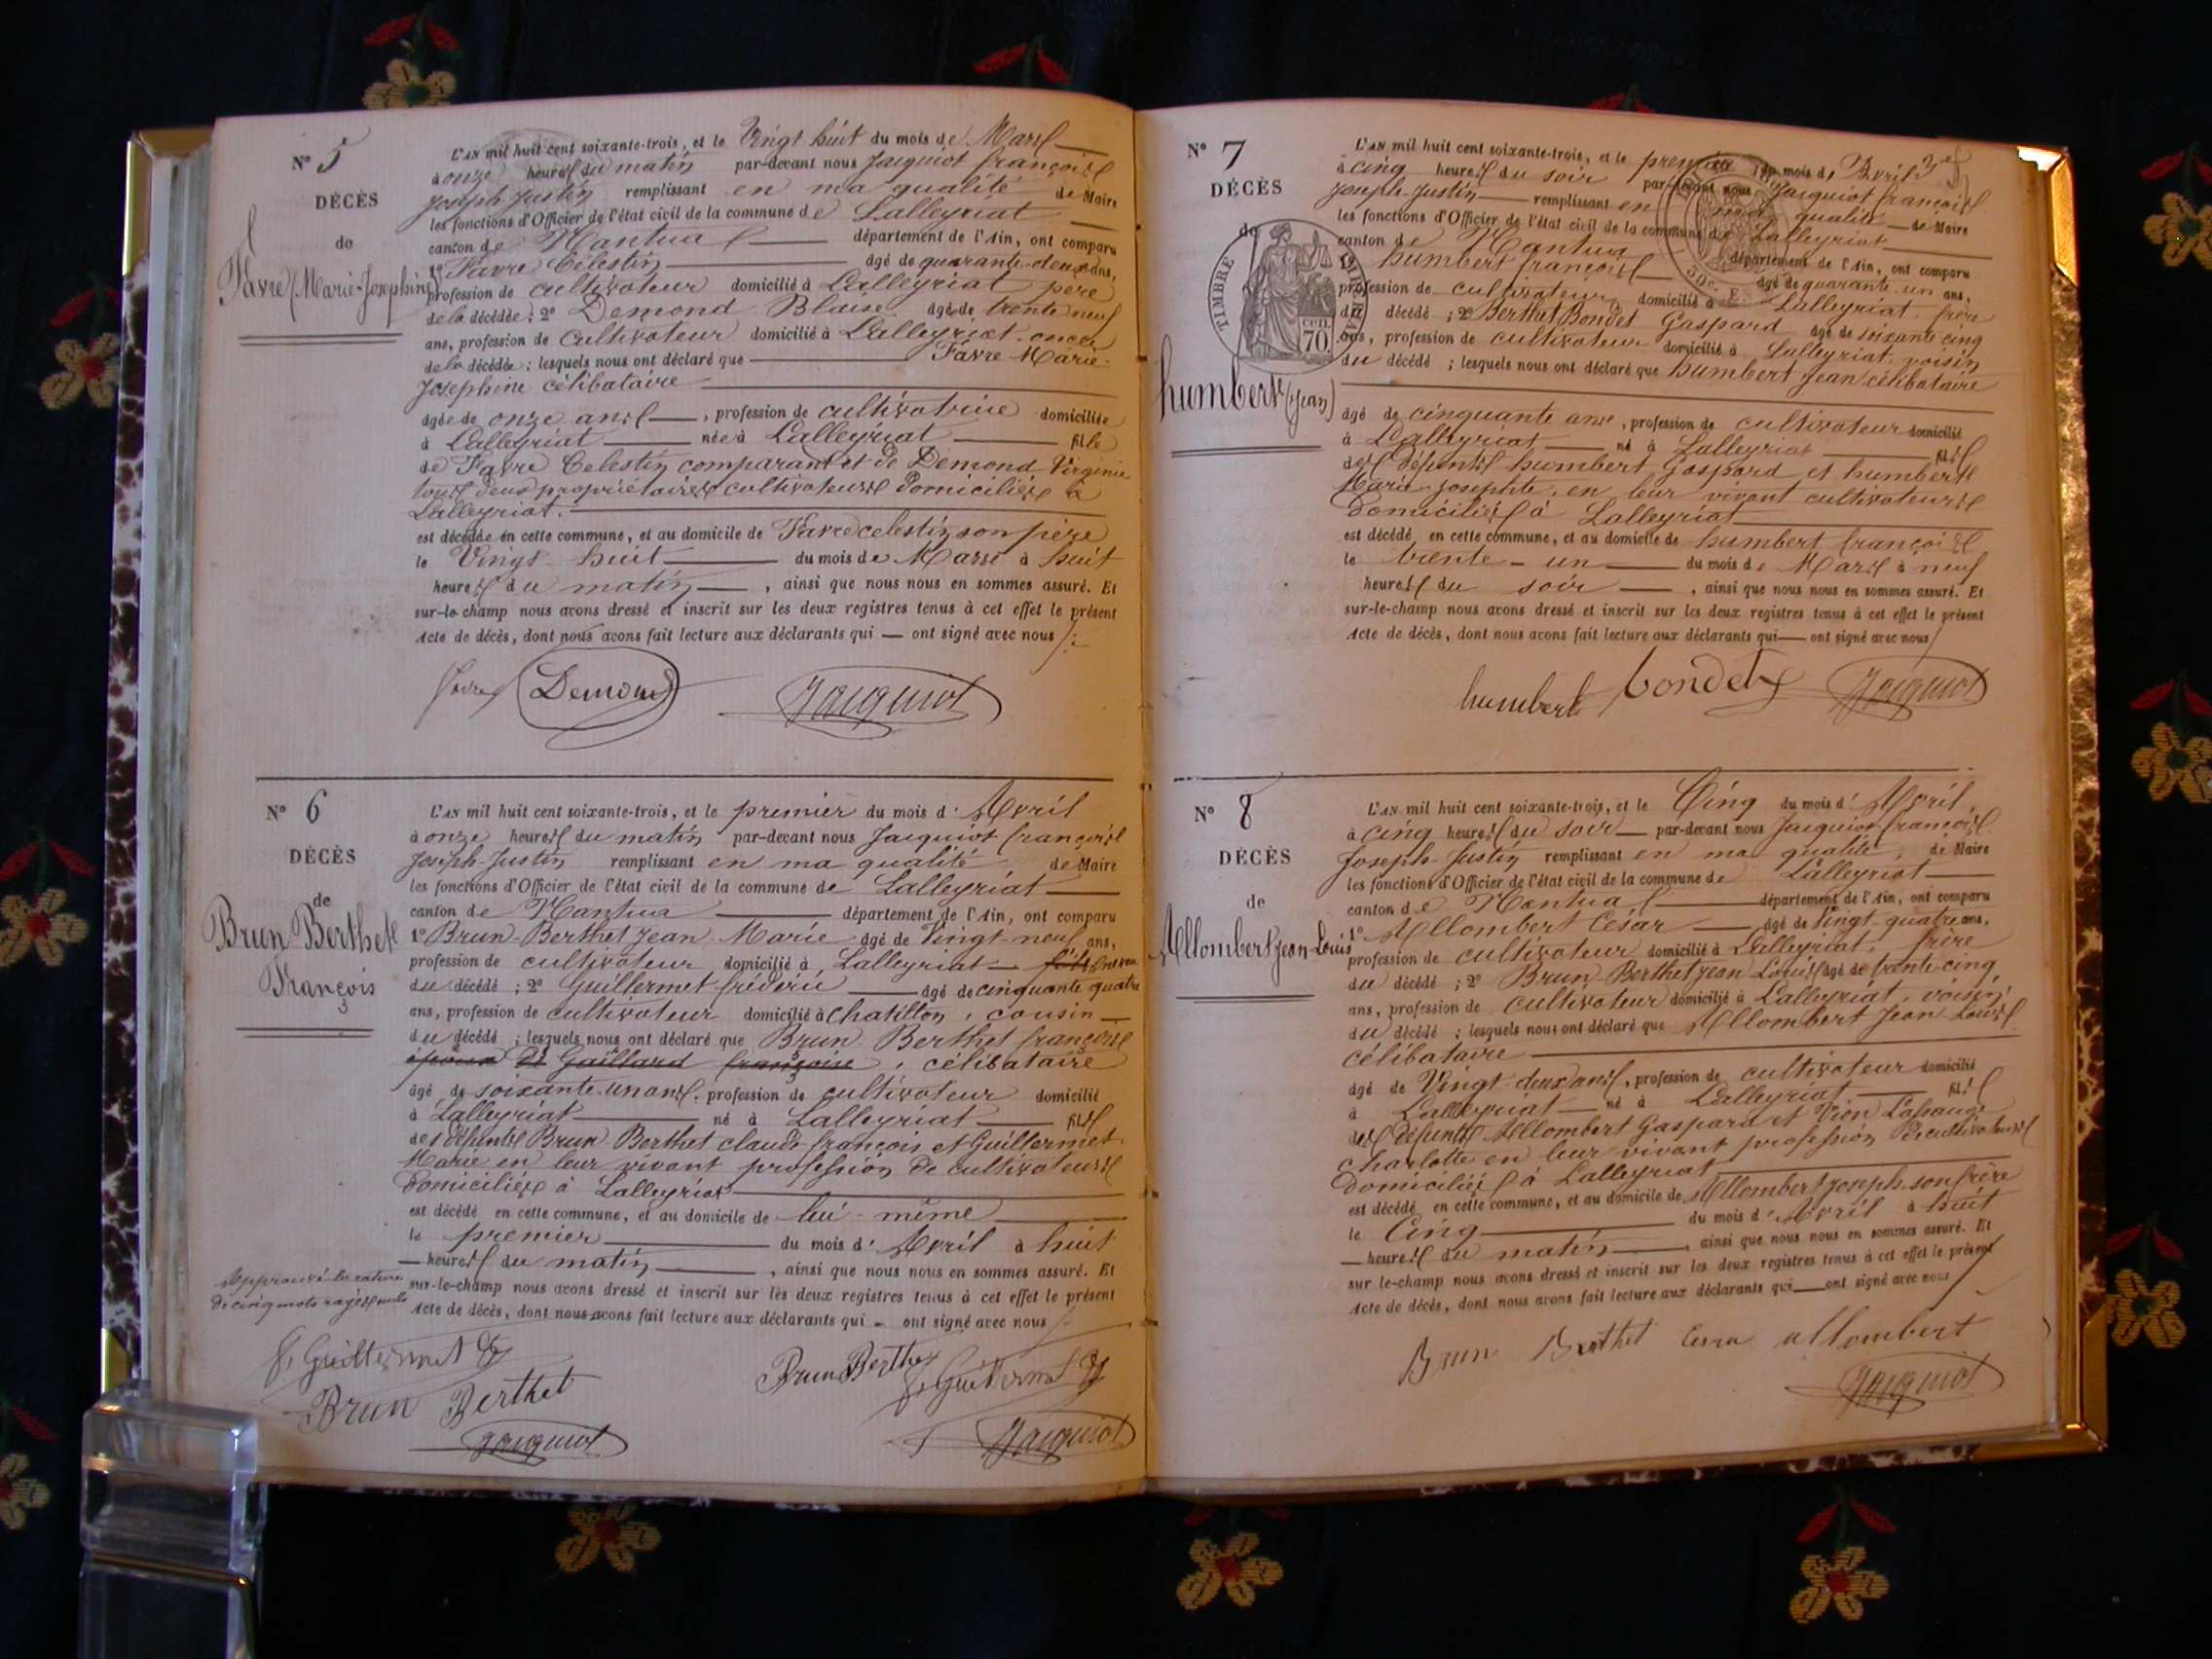 N° 5
DÉCÈS
de
Favre (Marie-Josephine)
L'AN mil huit cent soixante-trois, et le Vingt huit du mois de Mars
à onze heures du matin par-devant nous Jacquiot françois
Joseph-Justin remplissant en ma qualité de Maire
les fonctions d'Officier de l'état civil de la commune de Lalleyriat
canton de Nantua département de l'Ain, ont comparu
1° Favre Célestin âgé de quarante-deux ans,
profession de cultivateur domicilié à Lalleyriat père
de la décédée ; 2° Demond Blaise âgé de trente neuf
ans, profession de cultivateur domicilié à Lalleyriat oncle
de la décédée ; lesquels nous ont déclaré que Favre Marie-
Josephine célibataire
âgée de onze ans, profession de cultivatrice domiciliée
à Lalleyriat née à Lalleyriat fille
de Favre Celestin comparant et de Demond Virginie
tous deux propriétaires cultivateurs domiciliés à
Lalleyriat.
est décédée en cette commune, et au domicile de Favre celestin son père
le Vingt-huit du mois de Mars à huit
heures du matin, ainsi que nous nous en sommes assuré. Et
sur-le-champ nous avons dressé et inscrit sur les deux registres tenus à cet effet le présent
Acte de décès, dont nous avons fait lecture aux déclarants qui — ont signé avec nous
favre Demond Jacquiot
N° 6
DÉCÈS
de
Brun Berthet
François
L'AN mil huit cent soixante-trois, et le premier du mois d'Avril
à onze heures du matin par-devant nous Jacquiot françois
Joseph-Justin remplissant en ma qualité de Maire
les fonctions d'Officier de l'état civil de la commune de Lalleyriat
canton de Nantua département de l'Ain, ont comparu
1° Brun-Berthet Jean-Marie âgé de Vingt-neuf ans,
profession de cultivateur domicilié à Lalleyriat neveu
du décédé ; 2° Guillermet fréderic âgé de cinquante quatre
ans, profession de cultivateur domicilié à Chatillon, cousin
du décédé ; lesquels nous ont déclaré que Brun Berthet françois
époux de Gaillard françoise, célibataire
âgé de soixante-un ans, profession de cultivateur domicilié
à Lalleyriat né à Lalleyriat fils
des défunts Brun Berthet claude françois et Guillermet
Marie en leur vivant profession de cultivateurs
domiciliés à Lalleyriat
est décédé en cette commune, et au domicile de lui-même
le premier du mois d'Avril à huit
heures du matin, ainsi que nous nous en sommes assuré. Et
sur-le-champ nous avons dressé et inscrit sur les deux registres tenus à cet effet le présent
Acte de décès, dont nous avons fait lecture aux déclarants qui - ont signé avec nous
Approuvé la rature
de cinq mots rayés nuls
f. Guillermet
Brun Berthet
Jacquiot
Brun Berthet
f. Guillermet
Jacquiot
N° 7
DÉCÈS
de
humbert (Jean)
TIMBRE IMPÉRIAL
CEN. 70
50 c.
3 ef
L'AN mil huit cent soixante-trois, et le premier du mois de Avril
à cinq heures du soir par-devant nous Jacquiot françois
Joseph-Justin remplissant en ma qualité de Maire
les fonctions d'Officier de l'état civil de la commune de Lalleyriat
canton de Nantua département de l'Ain, ont comparu
1° humbert françois âgé de quarante-un ans,
profession de cultivateur domicilié à Lalleyriat frère
du décédé ; 2° Berthet Bondet Gaspard âgé de soixante cinq
ans, profession de cultivateur domicilié à Lalleyriat voisin
du décédé ; lesquels nous ont déclaré que humbert Jean célibataire
âgé de cinquante ans, profession de cultivateur domicilié
à Lalleyriat né à Lalleyriat fils
des défunts humbert Gaspard et humbert
Marie-Josephte, en leur vivant cultivateurs
domiciliés à Lalleyriat
est décédé en cette commune, et au domicile de humbert françois
le trente-un du mois de Mars à neuf
heures du soir, ainsi que nous nous en sommes assuré. Et
sur-le-champ nous avons dressé et inscrit sur les deux registres tenus à cet effet le présent
Acte de décès, dont nous avons fait lecture aux déclarants qui — ont signé avec nous
humbert bondet Jacquiot
N° 8
DÉCÈS
de
Allombert Jean-Louis
L'AN mil huit cent soixante-trois, et le Cinq du mois d'Avril,
à cinq heures du soir par-devant nous Jacquiot françois
Joseph-Justin remplissant en ma qualité, de Maire
les fonctions d'Officier de l'état civil de la commune de Lalleyriat
canton de Nantua département de l'Ain, ont comparu
1° Allombert César âgé de Vingt-quatre ans,
profession de cultivateur domicilié à Lalleyriat, frère
du décédé ; 2° Brun Berthet Jean Louis âgé de trente cinq
ans, profession de cultivateur domicilié à Lalleyriat, voisin
du décédé ; lesquels nous ont déclaré que Allombert Jean-Louis
célibataire
âgé de Vingt-deux ans, profession de cultivateur domicilié
à Lalleyriat né à Lalleyriat fils
des défunts Allombert Gaspard et Vion
Charlotte en leur vivant profession de cultivateurs
domiciliés à Lalleyriat
est décédé en cette commune, et au domicile de Allombert Joseph son frère
le Cinq du mois d'Avril à huit
heures du matin, ainsi que nous nous en sommes assuré. Et
sur le-champ nous avons dressé et inscrit sur les deux registres tenus à cet effet le présent
Acte de décès, dont nous avons fait lecture aux déclarants qui — ont signé avec nous
Brun Berthet allombert
Jacquiot